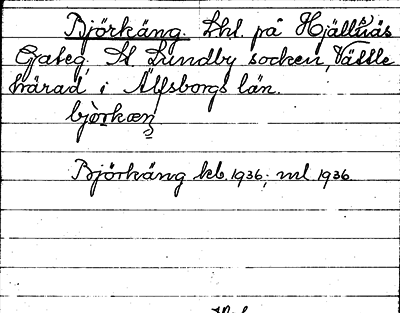 Björkäng. Lht. på Hjällnäs
Gateg. St. Lundby socken, Vättle
härad i Älfsborgs län.
björkæŋ
Björkäng kb. 1936; ml 1936.